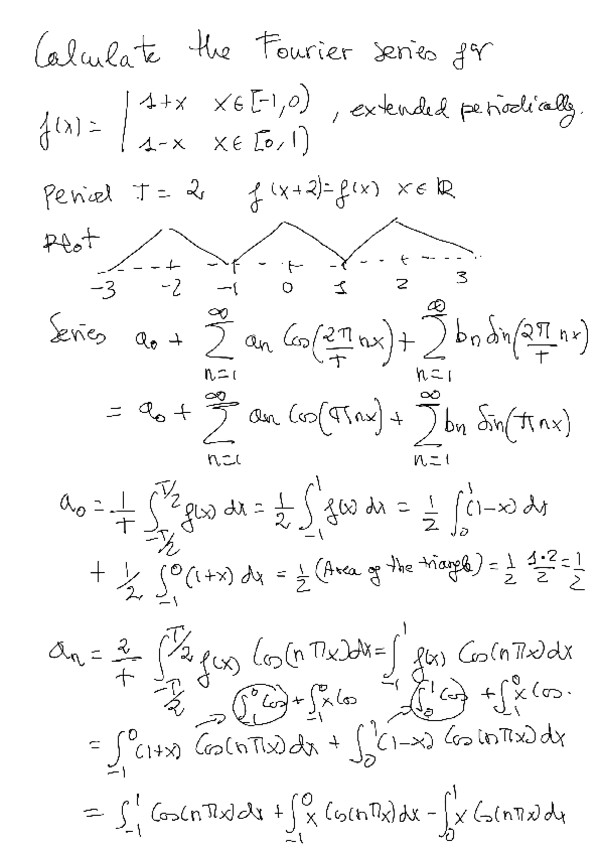 Calculate the Fourier series for
f(x) = | 1+x x∈[-1,0) , extended periodically.
1-x x∈[0,1)
Period T = 2 f(x+2)=f(x) x∈ℝ
Plot
-3 -2 -1 0 1 2 3
Series a₀ + ∑_{n=1}^{∞} an Cos(2π/T nx) + ∑_{n=1}^{∞} bn Sin(2π/T nx)
= a₀ + ∑_{n=1}^{∞} an Cos(πnx) + ∑_{n=1}^{∞} bn Sin(πnx)
a₀ = 1/T ∫_{-T/2}^{T/2} f(x) dx = 1/2 ∫_{-1}^{1} f(x) dx = 1/2 ∫_{0}^{1} (1-x) dx
+ 1/2 ∫_{-1}^{0} (1+x) dx = 1/2 (Area of the triangle) = 1/2 1·2/2 = 1/2
an = 2/T ∫_{-T/2}^{T/2} f(x) Cos(nπx) dx = ∫_{-1}^{1} f(x) Cos(nπx) dx
∫_{-1}^{0} Cos + ∫_{-1}^{0} x Cos ∫_{0}^{1} Cos + ∫_{-1}^{0} x Cos.
= ∫_{-1}^{0} (1+x) Cos(nπx) dx + ∫_{0}^{1} (1-x) Cos(nπx) dx
= ∫_{-1}^{1} Cos(nπx) dx + ∫_{-1}^{0} x Cos(nπx) dx - ∫_{0}^{1} x Cos(nπx) dx